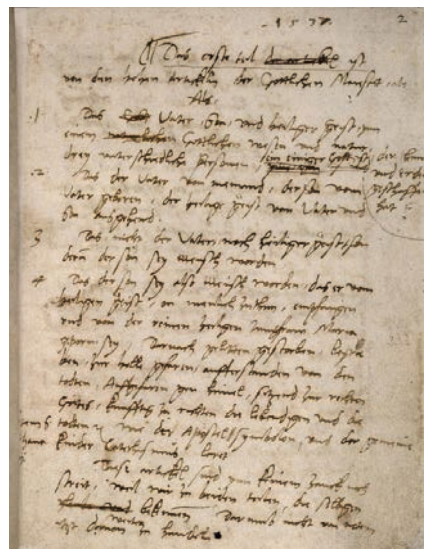 1537. 2
Das erste teil ist
von den hohen artickeln der Gottlichen Maiestet, als
Als.
.1 Das Vater, Son, und heiliger geist, inn
einem Gottlichen wesen und natur,
drey unterschiedliche personen, ein einiger Gott ist, der himel und erden geschaffen hat
.2. Das der Vater von niemand, der son vom
Vater geboren, der heilige geist von Vater und
Son ausgehend.
3 Das nicht der Vater, noch heiliger geist, son
dern der son sey mensch worden
4 Das der son sey also mensch worden, das er vom
heiligen geist, on menlich zuthun, empfangen
und von der reinen heiligen Jungfrau Maria
geporn sey, Darnach gelitten gestorben, begra
ben, zur helle gefaren, aufferstanden von den
todten, auffgefaren gen himel, sitzend zur rechten
Gottes, kunfftig zu richten die lebendigen und die
todten etc wie der Apostel symbolon, und der gemeine
kinder Catechismus leret
Diese artickel sind jnn keinem zanck noch
streit, weil wir zu beiden teilen, die selbigen
bekennen, Darumb nicht von noten
itzt davon zu handeln.